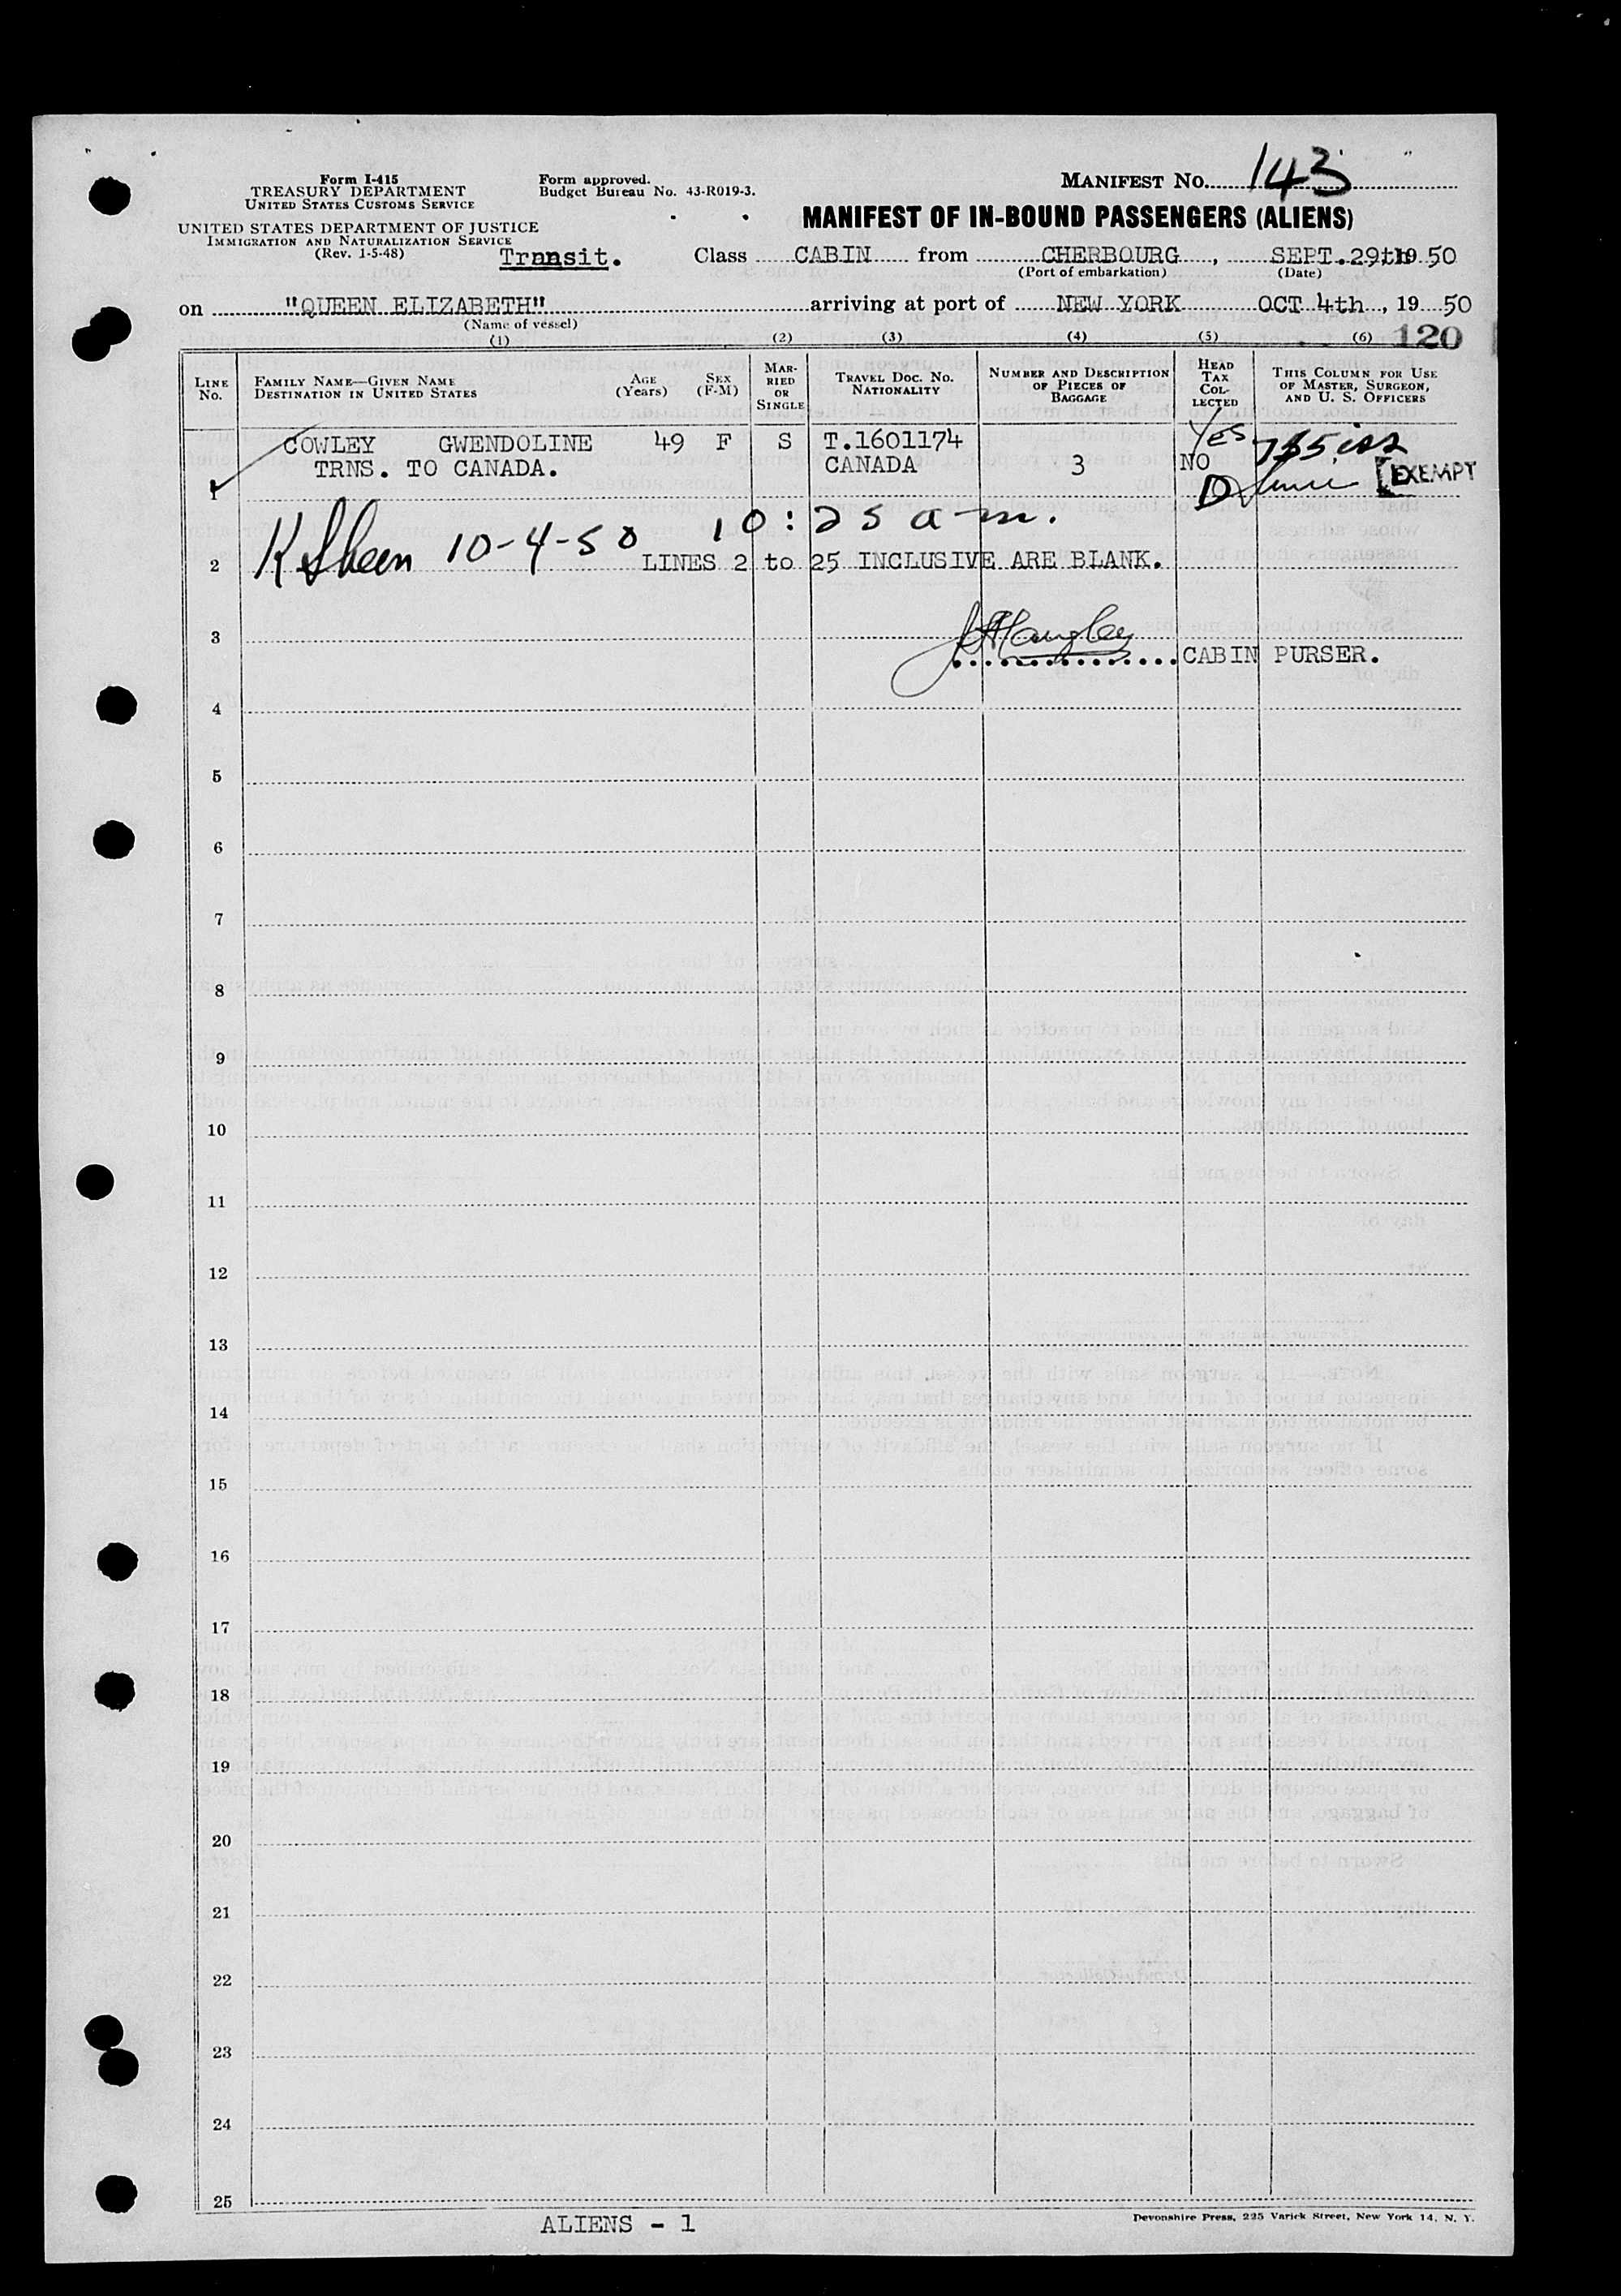 Form I-415
TREASURY DEPARTMENT
UNITED STATES CUSTOMS SERVICE
UNITED STATES DEPARTMENT OF JUSTICE
IMMIGRATION AND NATURALIZATION SERVICE
(Rev. 1-5-48)
Form approved.
Budget Bureau No. 43-R019-3.
MANIFEST NO. 143
MANIFEST OF IN-BOUND PASSENGERS (ALIENS)
Transit. Class CABIN from CHERBOURG, SEPT.29th 19 50
(Port of embarkation) (Date)
on "QUEEN ELIZABETH" arriving at port of NEW YORK OCT 4th, 19 50
(Name of vessel)
(1) (2) (3) (4) (5) (6) 120
LINE NO. FAMILY NAME—GIVEN NAME DESTINATION IN UNITED STATES AGE (YEARS) SEX (F-M) MARRIED OR SINGLE TRAVEL DOC. NO. NATIONALITY NUMBER AND DESCRIPTION OF PIECES OF BAGGAGE HEAD TAX COLLECTED THIS COLUMN FOR USE OF MASTER, SURGEON, AND U. S. OFFICERS
COWLEY GWENDOLINE 49 F S T.1601174 Yes
TRNS. TO CANADA. CANADA 3 NO EXEMPT
1
K Sheen 10-4-50 10:25 a-m.
2 LINES 2 to 25 INCLUSIVE ARE BLANK.
3
CABIN PURSER.
4
5
6
7
8
9
10
11
12
13
14
15
16
17
18
19
20
21
22
23
24
25
ALIENS - 1
Devonshire Press, 225 Varick Street, New York 14, N. Y.